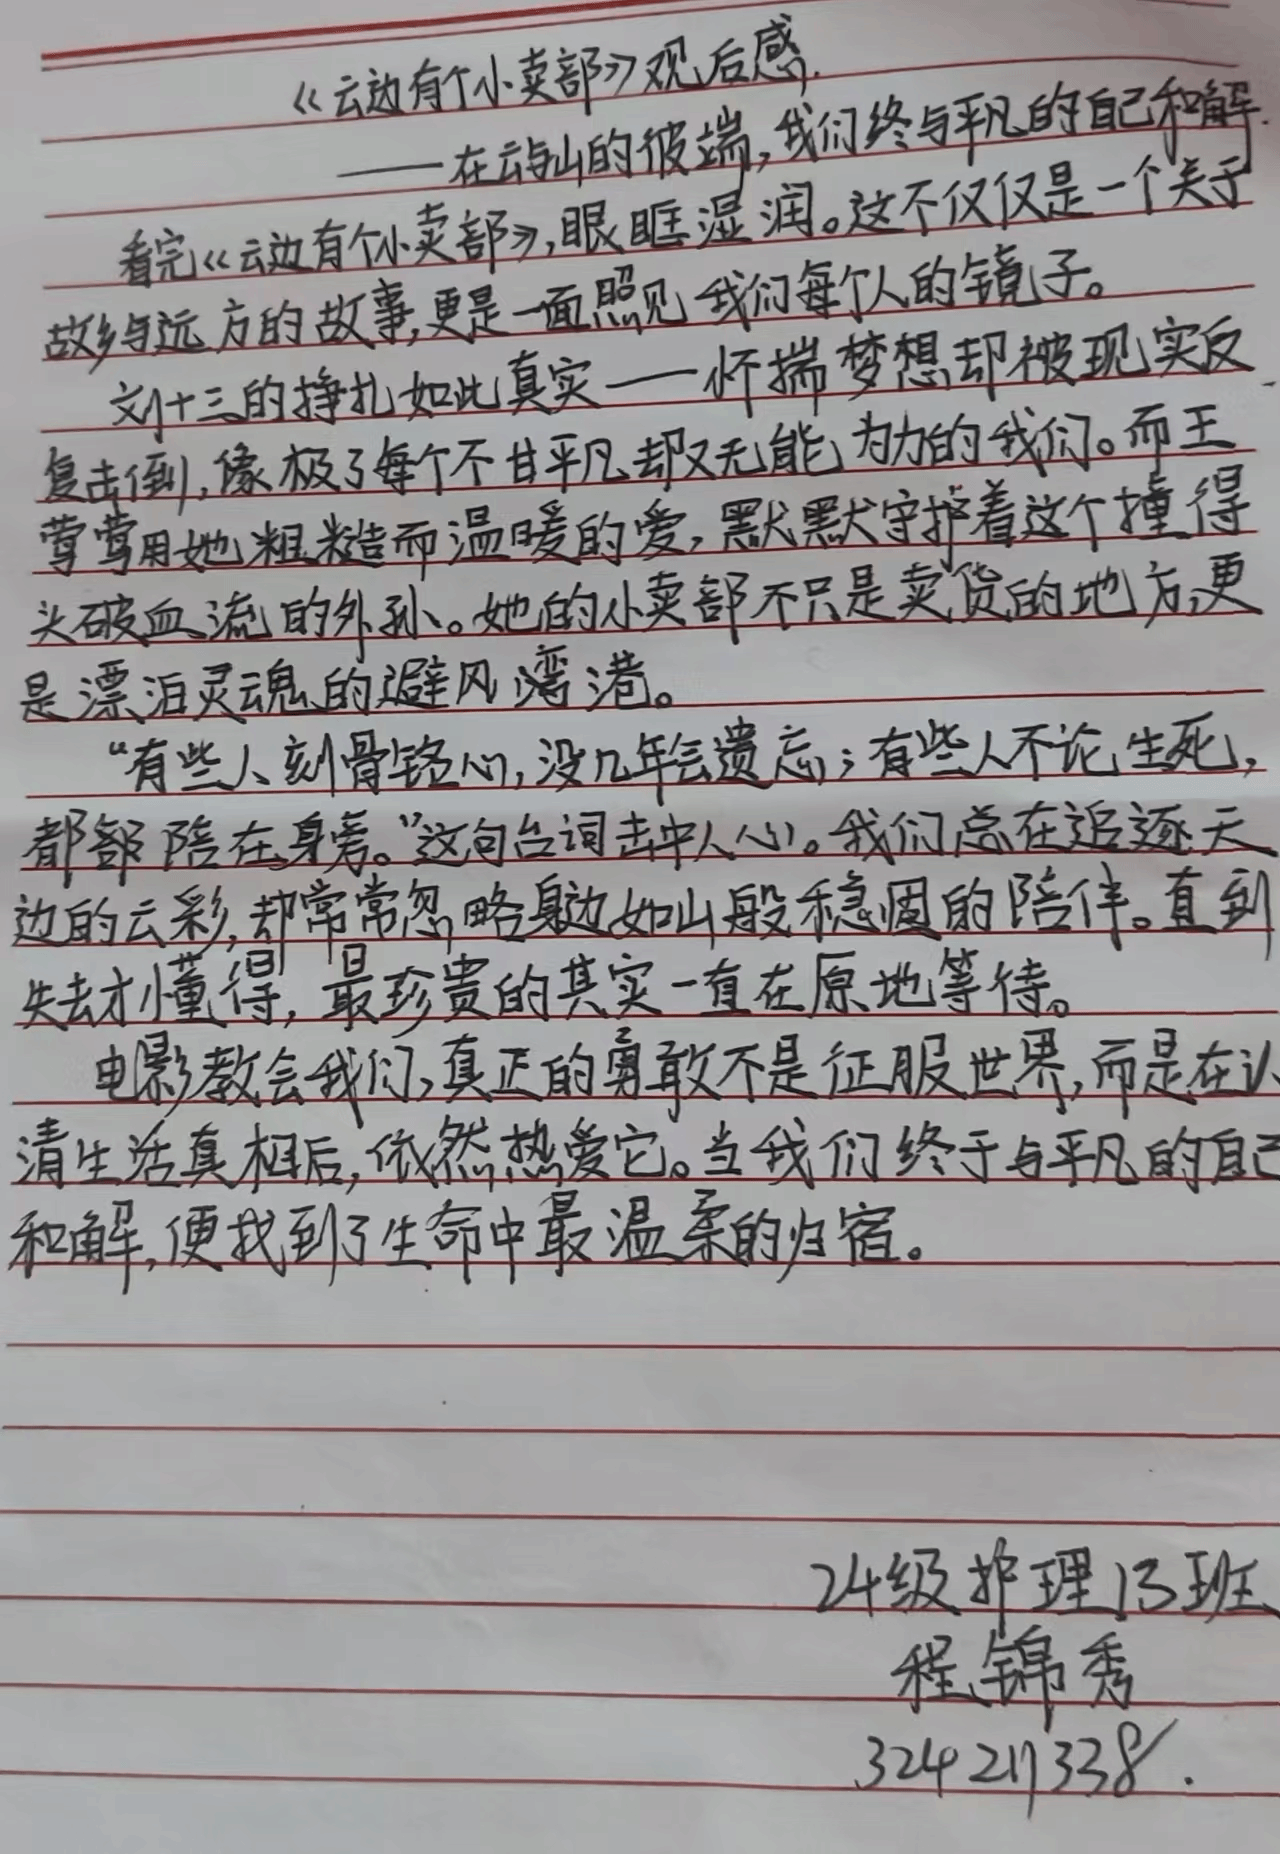 《云边有个小卖部》观后感.
——在云与山的彼端,我们终与平凡的自己和解.
看完《云边有个小卖部》,眼眶湿润。这不仅仅是一个关于
故乡与远方的故事,更是一面照见我们每个人的镜子。
刘十三的挣扎如此真实——怀揣梦想却被现实反
复击倒,像极了每个不甘平凡却又无能为力的我们。而王
莺莺用她粗糙而温暖的爱,默默守护着这个撞得
头破血流的外孙。她的小卖部不只是卖货的地方,更
是漂泊灵魂的避风湾港。
“有些人刻骨铭心,没几年会遗忘;有些人不论生死,
都都陪在身旁。”这句台词击中人心。我们总在追逐天
边的云彩,却常常忽略身边如山般稳固的陪伴。直到
失去才懂得,最珍贵的其实一直在原地等待。
电影教会我们,真正的勇敢不是征服世界,而是在认
清生活真相后,依然热爱它。当我们终于与平凡的自己
和解,便找到了生命中最温柔的归宿。
24级护理13班
程锦秀
324211338.